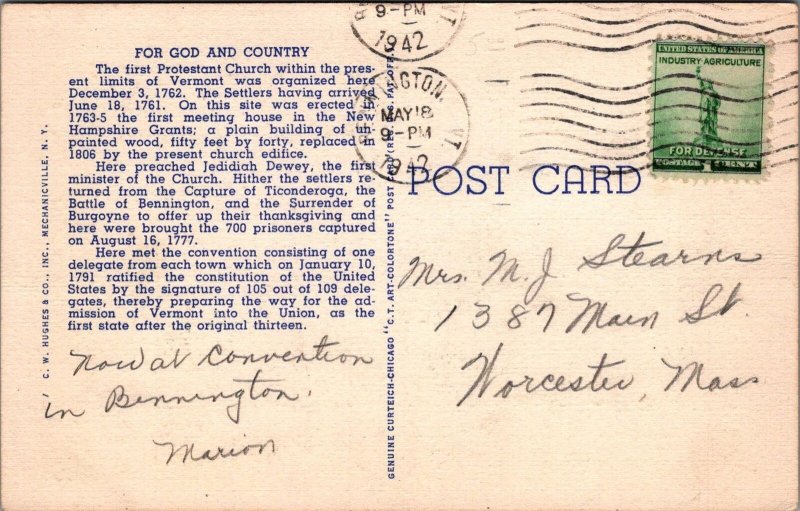 FOR GOD AND COUNTRY
The first Protestant Church within the pres-
ent limits of Vermont was organized here
December 3, 1762. The Settlers having arrived
June 18, 1761. On this site was erected in
1763-5 the first meeting house in the New
Hampshire Grants; a plain building of un-
painted wood, fifty feet by forty, replaced in
1806 by the present church edifice.
Here preached Jedidiah Dewey, the first
minister of the Church. Hither the settlers re-
turned from the Capture of Ticonderoga, the
Battle of Bennington, and the Surrender of
Burgoyne to offer up their thanksgiving and
here were brought the 700 prisoners captured
on August 16, 1777.
Here met the convention consisting of one
delegate from each town which on January 10,
1791 ratified the constitution of the United
States by the signature of 105 out of 109 dele-
gates, thereby preparing the way for the ad-
mission of Vermont into the Union, as the
first state after the original thirteen.
Now at Convention
in Bennington.
Marion
C. W. HUGHES & CO., INC., MECHANICVILLE, N. Y.
GENUINE CURTEICH-CHICAGO "C.T. ART-COLORTONE" POST CARD (REG. U.S. PAT. OFF.)
9-PM
1942
VT.
MAY 18
9-PM
1942
VT.
UNITED STATES OF AMERICA
INDUSTRY-AGRICULTURE
FOR DEFENSE
POSTAGE 1 CENT
POST CARD
Mrs. M. J. Stearns
1387 Main St.
Worcester, Mass